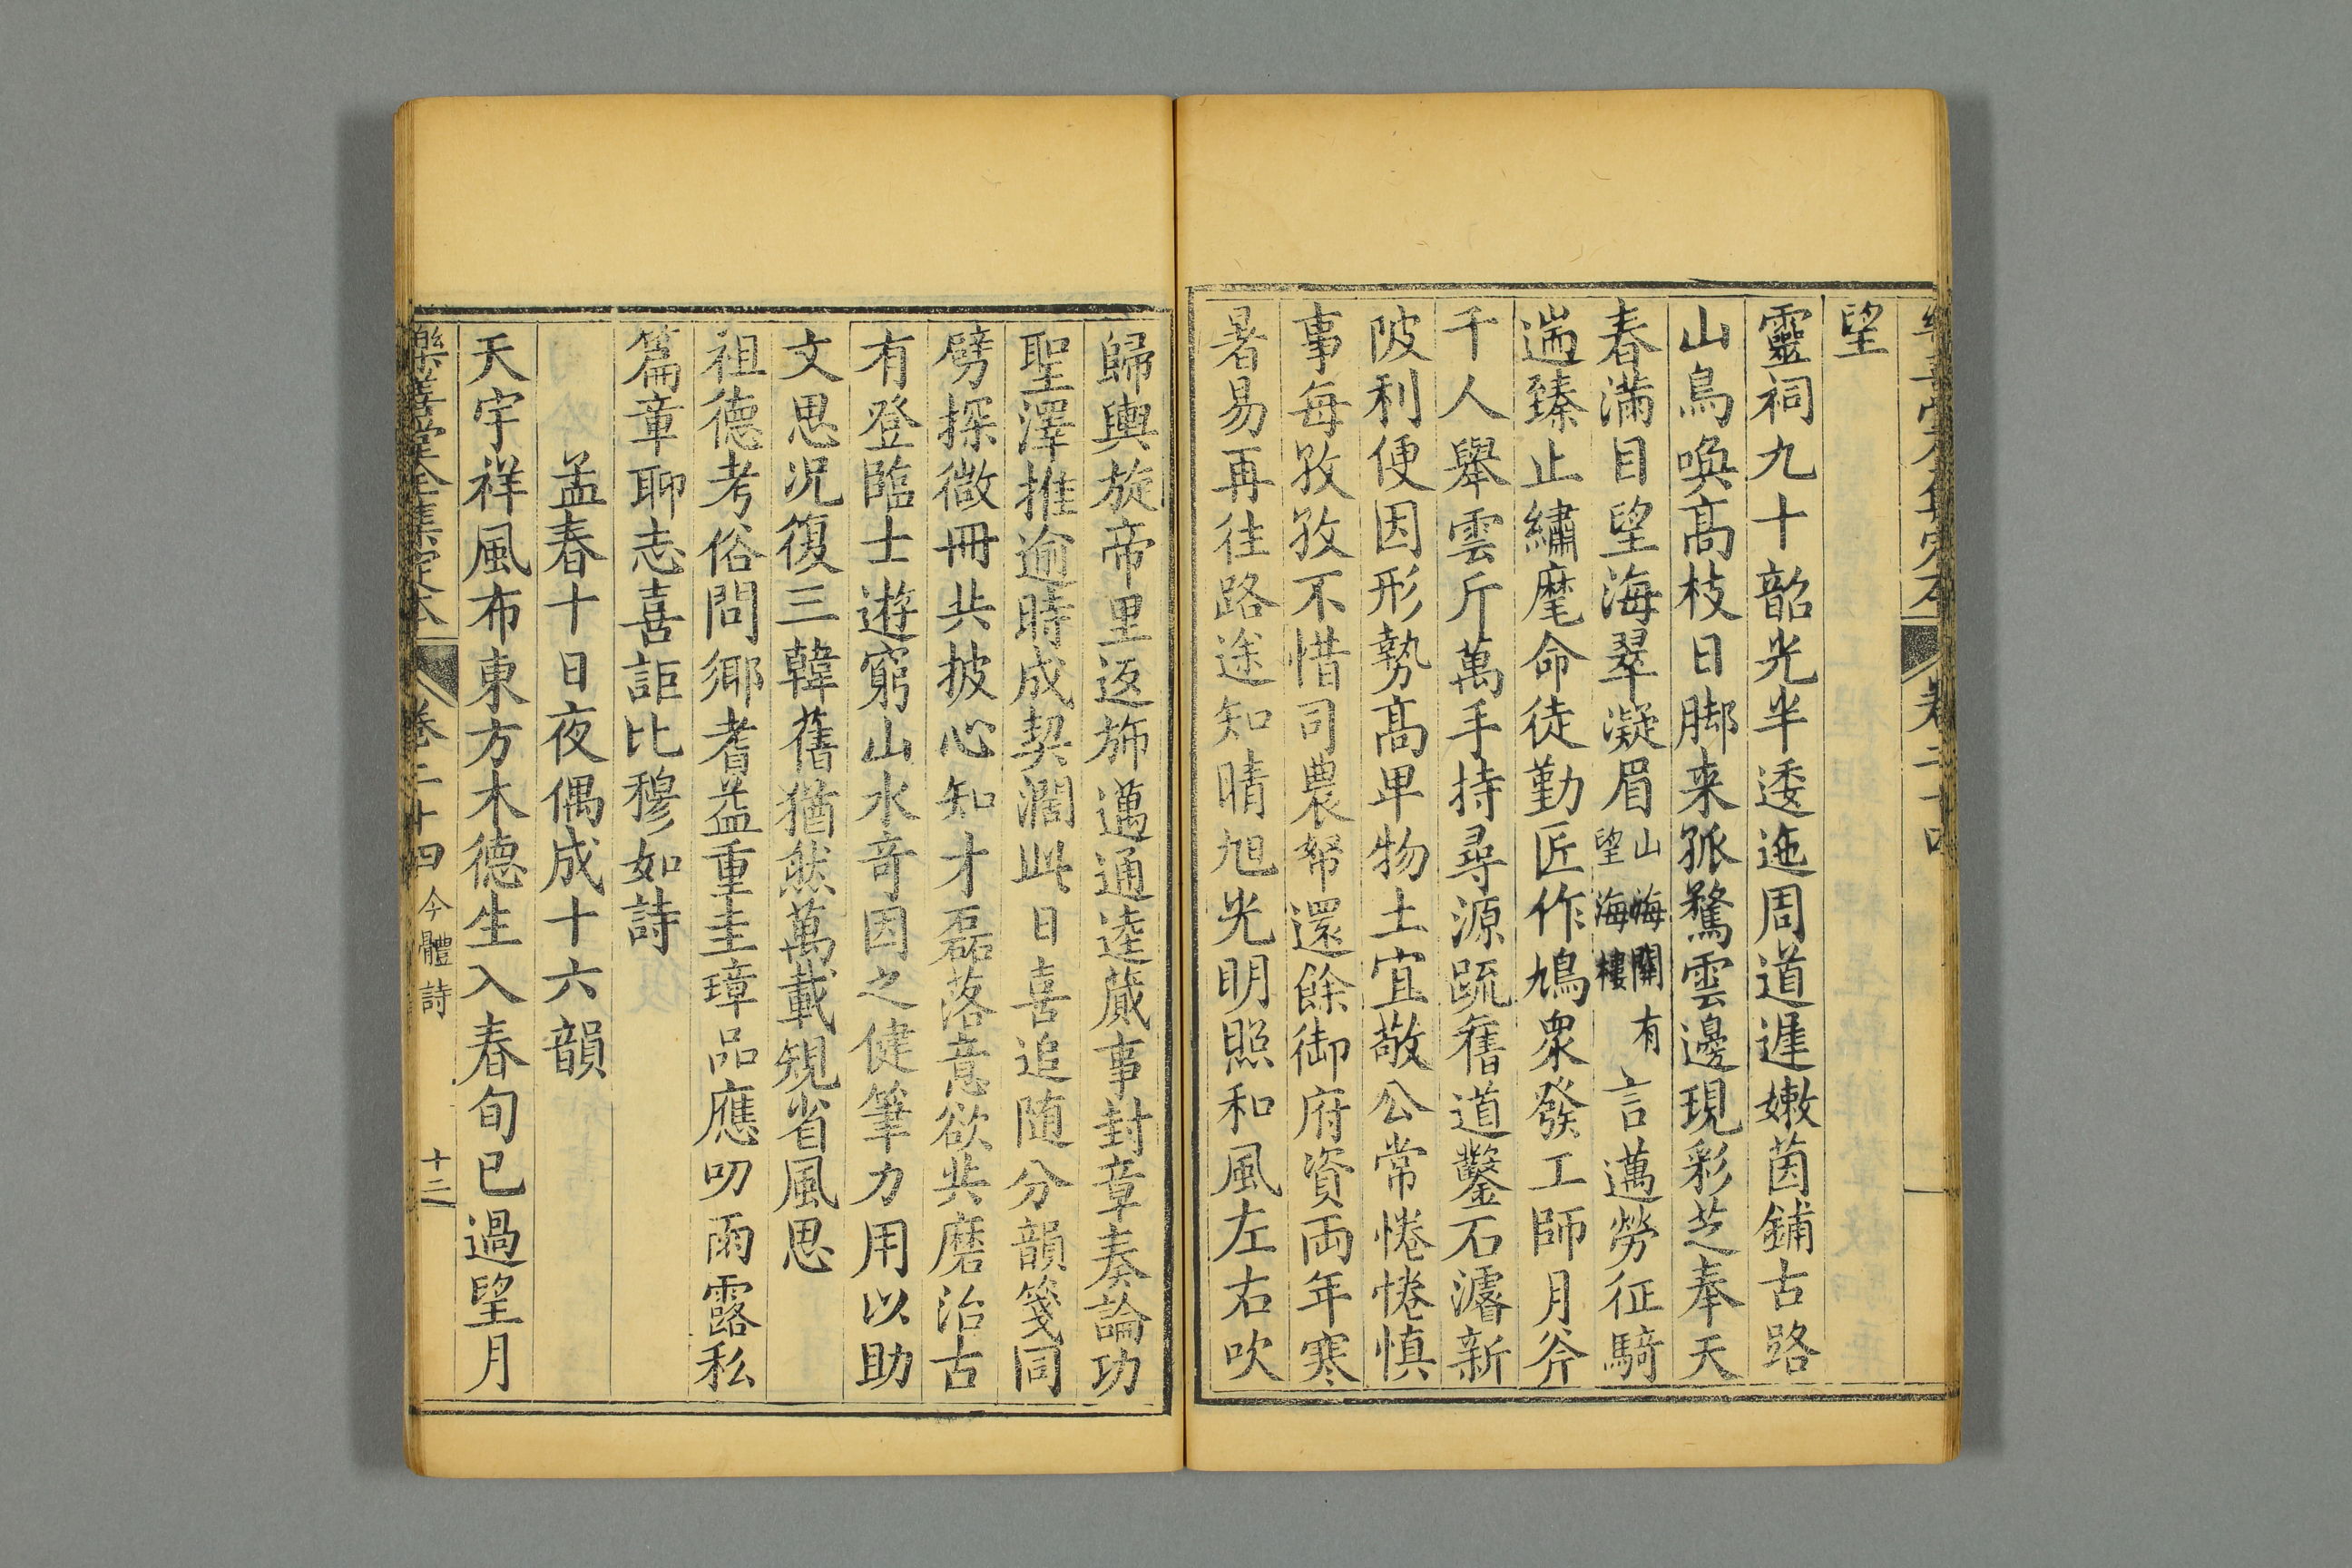 樂善堂全集定本 卷二十四
望
靈祠九十韶光半逶迤周道遲嫩茵鋪古路
山鳥喚高枝日脚来孤鶩雲邊現彩芝奉天
春滿目望海翠凝眉山海關有望海樓言邁勞征騎
遄臻止繡麾命徒勤匠作鳩衆發工師月斧
千人舉雲斤萬手持尋源疏舊道鑿石濬新
陂利便因形勢高卑物土宜敬公常惓惓慎
事每孜孜不惜司農帑還餘御府資両年寒
暑易再徃路途知晴旭光明照和風左右吹
歸輿旋帝里返斾邁通逵蕆事封章奏論功
聖澤推逾時成契濶此日喜追随分韻箋同
劈探微冊共披心知才磊落意欲共磨治古
有登臨士遊窮山水奇因之健筆力用以助
文思况復三韓舊猶然萬載規省風思
祖德考俗問鄉耆益重圭璋品應叨雨露私
篇章聊志喜詎比穆如詩
孟春十日夜偶成十六韻
天宇祥風布東方木德生入春旬已過望月
樂善堂全集定本 卷二十四 今體詩 十二